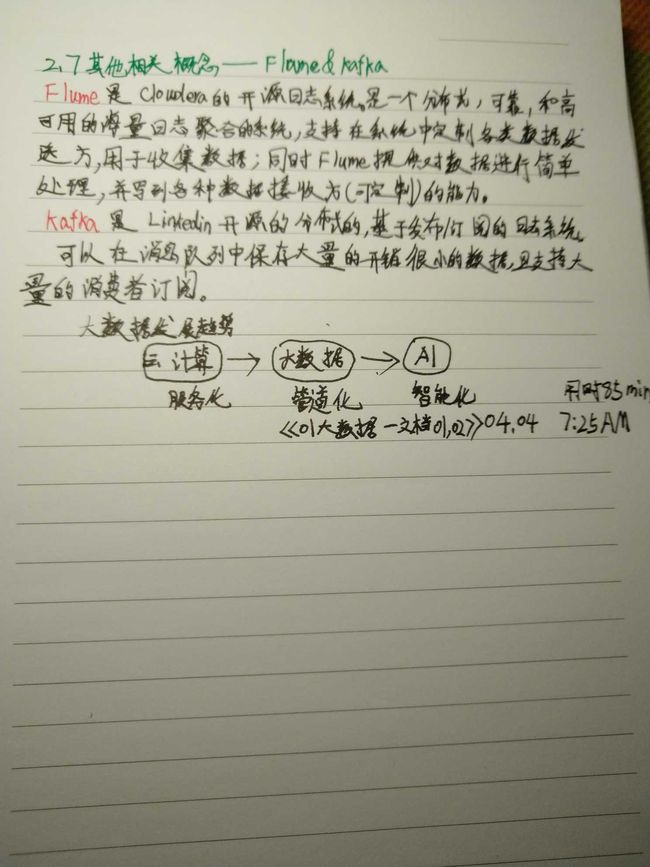 2.7 其他相关概念 —— Flume & kafka
Flume 是 Cloudera的开源日志系统。是一个分布式，可靠，和高
可用的海量日志聚合的系统，支持在系统中定制各类数据发
送方，用于收集数据；同时Flume提供对数据进行简单
处理，并写到各种数据接收方(可定制)的能力。
kafka 是 Linkedin 开源的分布式的，基于发布/订阅的日志系统。
可以在消息队列中保存大量的开销很小的数据，且支持大
量的消费者订阅。
大数据发展趋势
云计算 → 大数据 → AI
服务化 管道化 智能化 用时85min
《01大数据一文档01,02》04.04 7:25AM